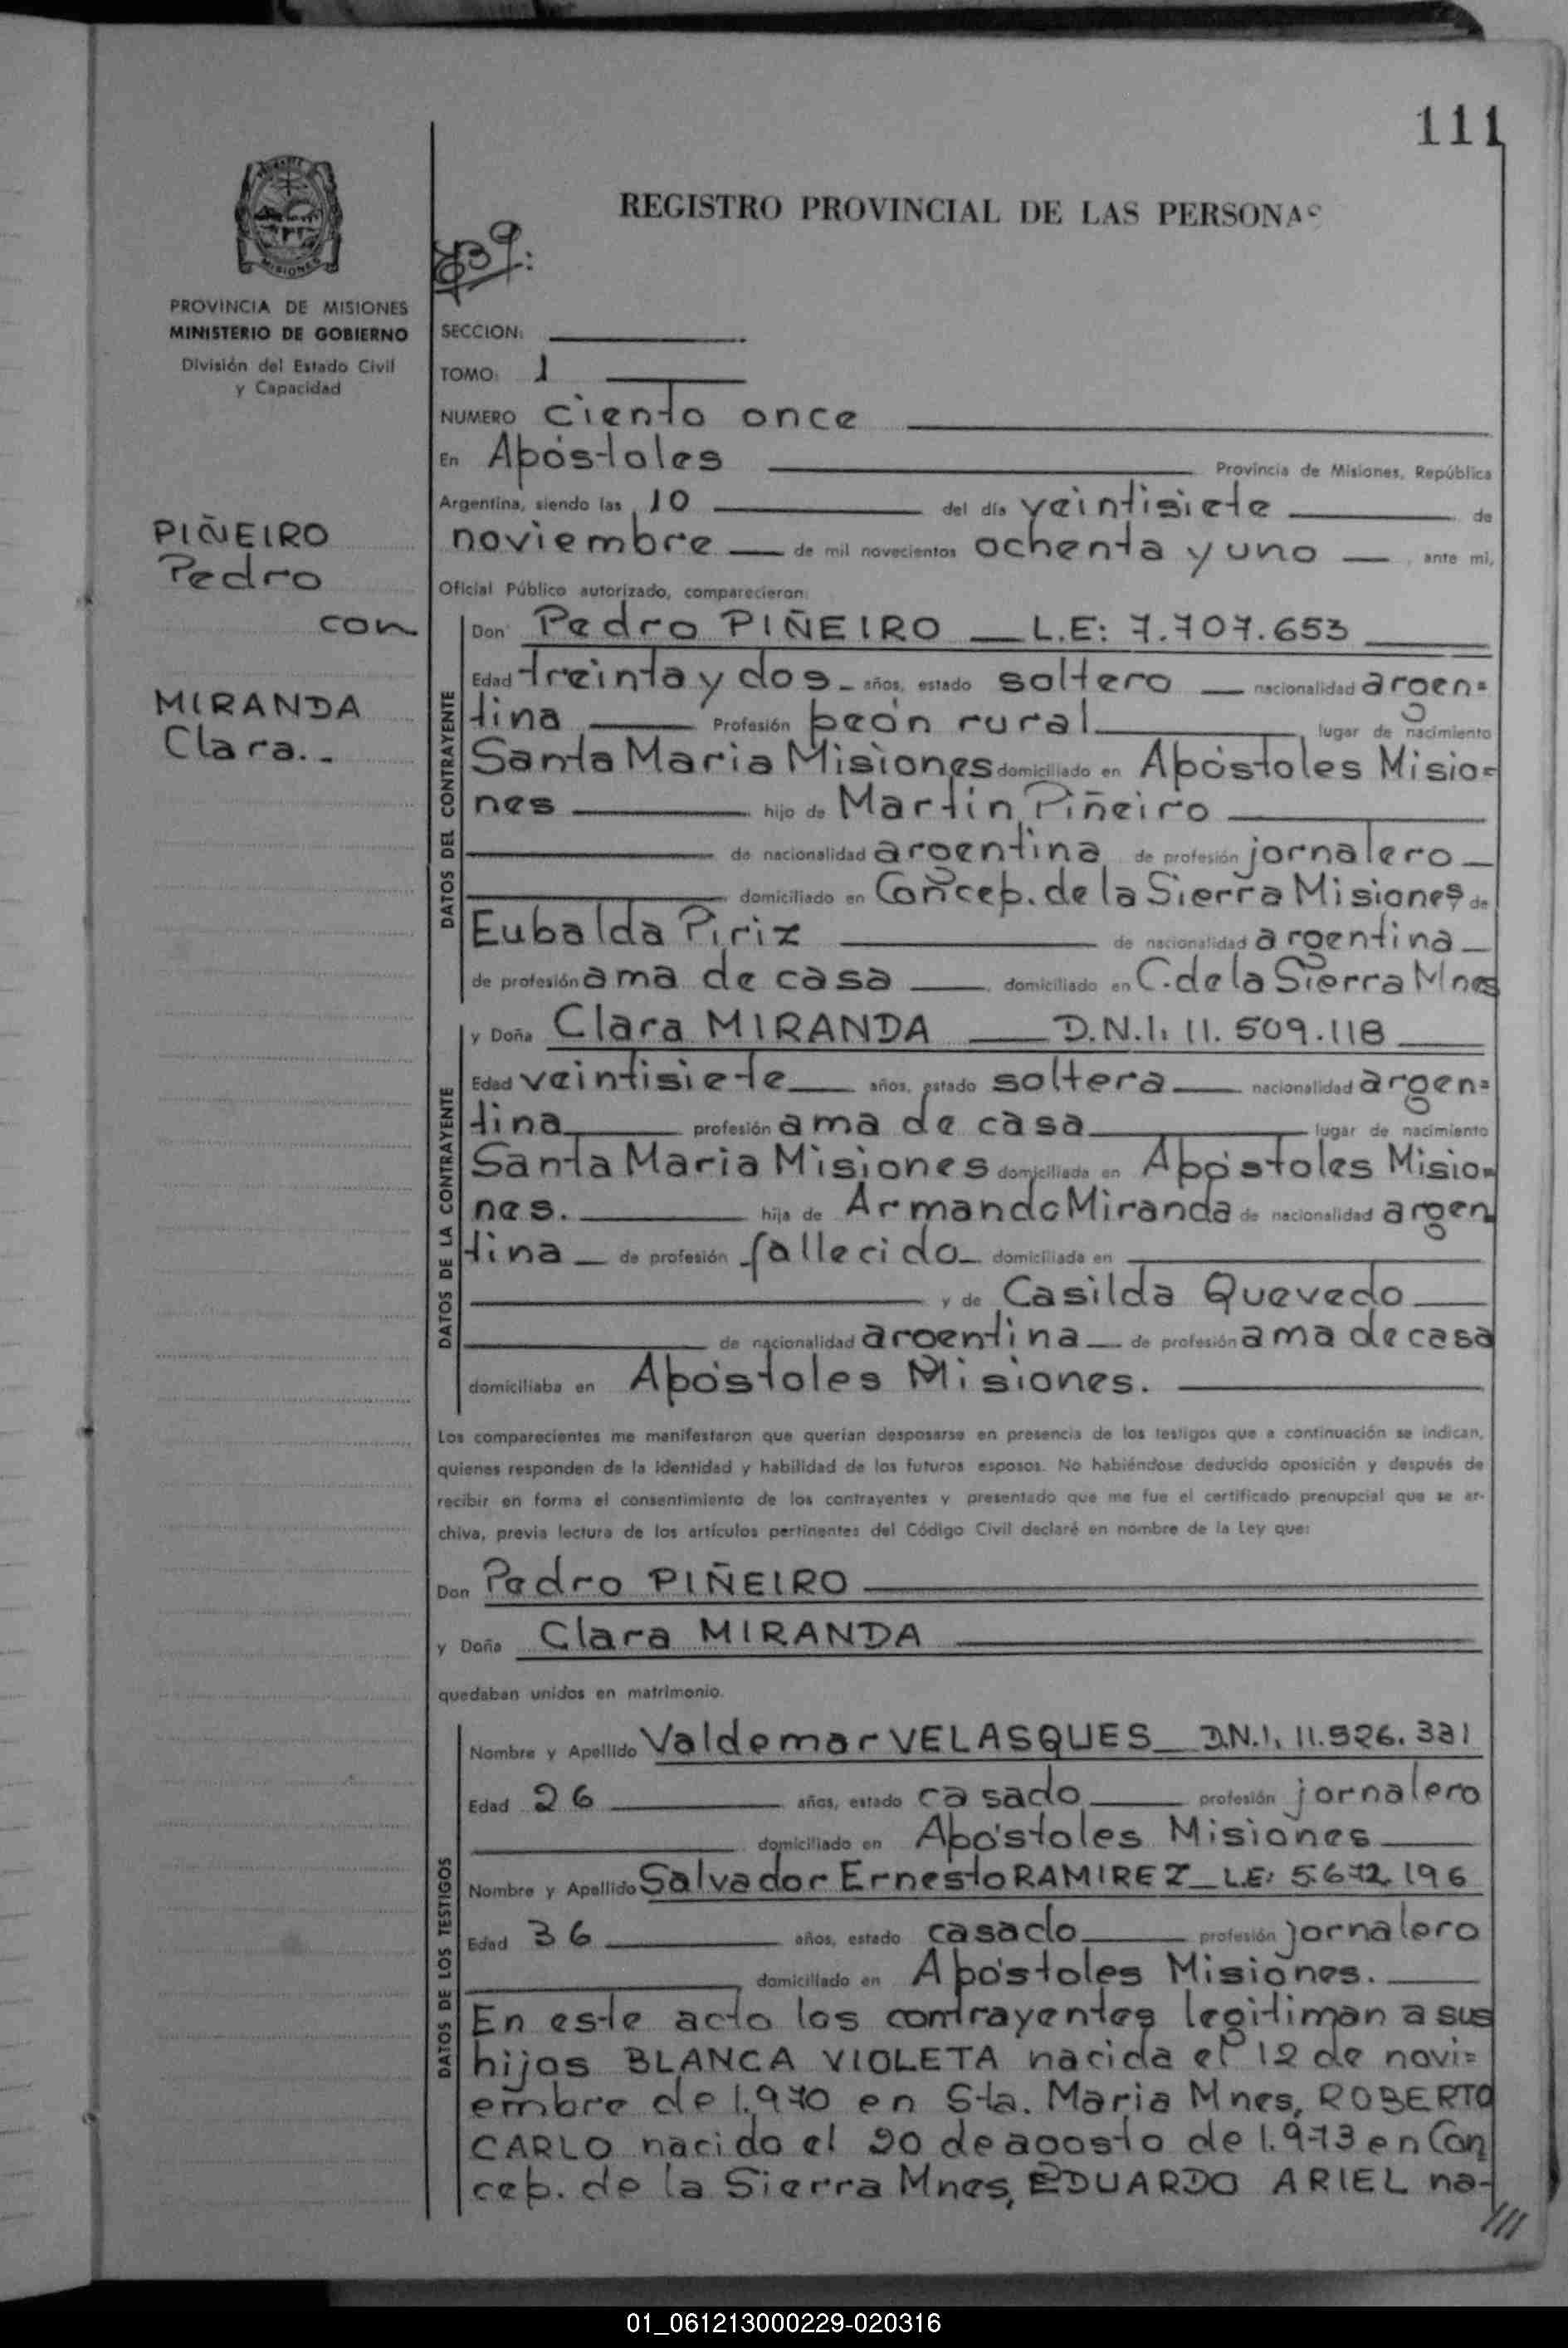 111
REGISTRO PROVINCIAL DE LAS PERSONAS
839:
MISIONES
PROVINCIA DE MISIONES
MINISTERIO DE GOBIERNO
División del Estado Civil
y Capacidad
SECCION:
TOMO: 1
NUMERO ciento once
En Apóstoles Provincia de Misiones, República
Argentina, siendo las 10 del día veintisiete de
noviembre de mil novecientos ochenta y uno, ante mi,
Oficial Público autorizado, comparecieron:
PIÑEIRO
Pedro
con
MIRANDA
Clara.-
DATOS DEL CONTRAYENTE
Don Pedro PIÑEIRO L.E: 7.707.653
Edad treinta y dos años, estado soltero nacionalidad argen=
tina Profesión peón rural, lugar de nacimiento
Santa Maria Misiones domiciliado en Apóstoles Misio=
nes hijo de Martin Piñeiro
de nacionalidad argentina de profesión jornalero
domiciliado en Concep. de la Sierra Misiones de
Eubalda Piriz de nacionalidad argentina
de profesión ama de casa, domiciliado en C. de la Sierra Mnes
DATOS DE LA CONTRAYENTE
y Doña Clara MIRANDA D.N.I: 11.509.118
Edad veintisiete años, estado soltera nacionalidad argen=
tina profesión ama de casa lugar de nacimiento
Santa Maria Misiones domiciliada en Apóstoles Misio=
nes. hija de Armando Miranda de nacionalidad argen
tina de profesión fallecido domiciliada en
y de Casilda Quevedo
de nacionalidad argentina de profesión ama de casa
domiciliaba en Apóstoles Misiones.
Los comparecientes me manifestaron que querían desposarse en presencia de los testigos que a continuación se indican,
quienes responden de la identidad y habilidad de los futuros esposos. No habiéndose deducido oposición y después de
recibir en forma el consentimiento de los contrayentes y presentado que me fue el certificado prenupcial que se ar-
chiva, previa lectura de los artículos pertinentes del Código Civil declaré en nombre de la Ley que:
Don Pedro PIÑEIRO
y Doña Clara MIRANDA
quedaban unidos en matrimonio.
DATOS DE LOS TESTIGOS
Nombre y Apellido Valdemar VELASQUES D.N.I. 11.526.331
Edad 26 años, estado casado profesión jornalero
domiciliado en Apóstoles Misiones
Nombre y Apellido Salvador Ernesto RAMIREZ L.E: 5.672.196
Edad 36 años, estado casado profesión jornalero
domiciliado en Apóstoles Misiones.
En este acto los contrayentes legitiman a sus
hijos BLANCA VIOLETA nacida el 12 de novi=
embre de 1.970 en Sta. Maria Mnes, ROBERTO
CARLO nacido el 20 de agosto de 1.973 en Con
cep. de la Sierra Mnes, EDUARDO ARIEL na-
///
01_061213000229-020316